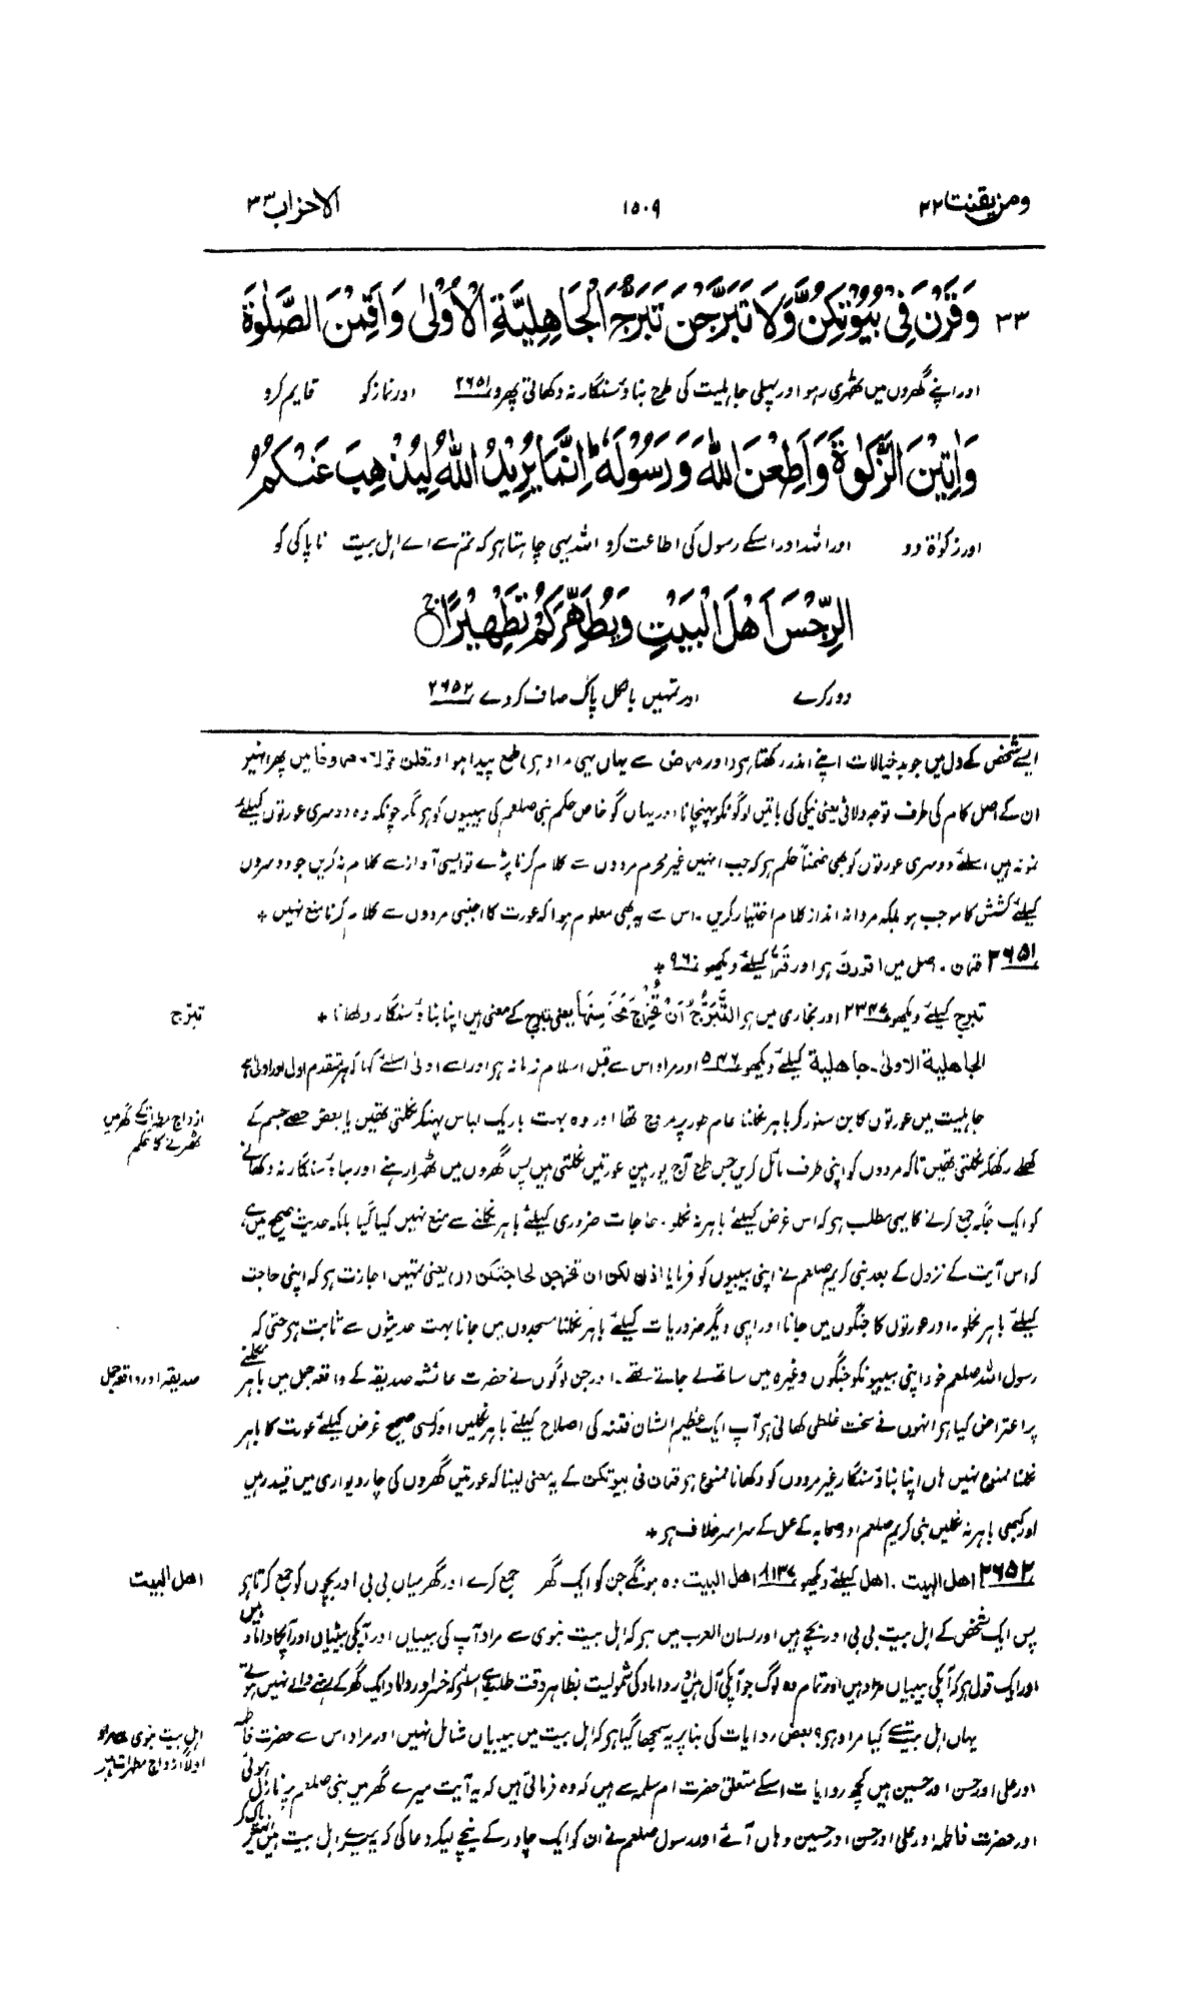 ومن یقنت ۲۲
۱۵۰۹
الاحزاب ۳۳
۳۳ وَقَرْنَ فِیْ بُیُوْتِکُنَّ وَلَا تَبَرَّجْنَ تَبَرُّجَ الْجَاھِلِیَّةِ الْاُوْلٰی وَاَقِمْنَ الصَّلٰوةَ
اور اپنے گھروں میں ٹھہری رہو اور پہلی جاہلیت کی طرح بناؤ سنگار نہ دکھاتی پھرو ۲۶۵۱ اور نماز کو قایم کرو
وَاٰتِیْنَ الزَّکٰوةَ وَاَطِعْنَ اللّٰہَ وَرَسُوْلَہٗ ؕ اِنَّمَا یُرِیْدُ اللّٰہُ لِیُذْھِبَ عَنْکُمُ
اور زکوٰۃ دو اور اللہ اور اسکے رسول کی اطاعت کرو اللہ یہی چاہتا ہو کہ تم سے اے اہل بیت ناپاکی کو
الرِّجْسَ اَھْلَ الْبَیْتِ وَیُطَھِّرَکُمْ تَطْھِیْرًا ۚ
دور کرے اور تمہیں بالکل پاک صاف کر دے ۲۶۵۲
ایسے شخص کے دل میں جو بد خیالات اپنے اندر رکھتا ہو اور مرض سے یہاں یہی مراد ہو طمع پیدا ہو اور قلن قولا معروفا میں پھر انہیں
ان کے اصل کام کی طرف توجہ دلائی یعنی نیکی کی باتیں لوگونکو پہنچانا اور یہاں گو خاص حکم نبی صلعم کی بیبیوں کو ہو مگر چونکہ وہ دوسری عورتوں کیلئے
نمونہ ہیں اسلئے دوسری عورتوں کو بھی ضمناً حکم ہو کہ جب انہیں غیر محرم مردوں سے کلام کرنا پڑے تو ایسی آواز سے کلام نہ کریں جو دوسروں
کیلئے کشش کا موجب ہو بلکہ مردانہ انداز کلام اختیار کریں۔ اس سے یہ بھی معلوم ہوا کہ عورت کا اجنبی مردوں سے کلام کرنا منع نہیں *
۲۶۵۱ قرن۔ اصل میں اقررن ہو اور قرّ کیلئے دیکھو ۹۶ *
تبرج کیلئے دیکھو ۲۳۴۷ اور بخاری میں ہو التَّبَرُّجُ اَنْ تُخْرِجَ مَحَاسِنَھَا یعنی تبرج کے معنی ہیں اپنا بناؤ سنگار دکھانا *
تبرّج
الجاھلیة الاولیٰ۔ جاھلیة کیلئے دیکھو ۵۴۶ اور مراد اس سے قبل اسلام زمانہ ہو اور اسے اولیٰ اسلئے کہا کہ ہر متقدم اول اور اولیٰ ہے
جاہلیت میں عورتوں کا بن سنور کر باہر نکلنا عام طور پر مروج تھا اور وہ بہت باریک لباس پہنکر نکلتی تھیں یا بعض حصے جسم کے
ازواج مطہرات کے گھر میں
ٹھہرنے کا حکم
کھلے رکھکر نکلتی تھیں تاکہ مردوں کو اپنی طرف مائل کریں جس طرح آج یورپین عورتیں نکلتی ہیں پس گھروں میں ٹھہرا رہنے اور بناؤ سنگار نہ دکھانے
کو ایک جگہ جمع کرنے کا یہی مطلب ہو کہ اس غرض کیلئے باہر نہ نکلو۔ حاجات ضروری کیلئے باہر نکلنے سے منع نہیں کیا گیا بلکہ حدیث صحیح میں ہے
کہ اس آیت کے نزول کے بعد نبی کریم صلعم نے اپنی بیبیوں کو فرمایا اذن لکن ان تخرجن لحاجتکن (ر) یعنی تمہیں اجازت ہو کہ اپنی حاجت
کیلئے باہر نکلو۔ اور عورتوں کا جنگوں میں جانا اور اپنی دیگر ضروریات کیلئے باہر نکلنا مسجدوں میں جانا بہت حدیثوں سے ثابت ہو حتی کہ
رسول اللہ صلعم خود اپنی بیبیونکو جنگوں وغیرہ میں ساتھ لے جاتے تھے۔ اور جن لوگوں نے حضرت عائشہ صدیقہ کے واقعہ جمل میں باہر نکلنے
صدیقہ اور واقعہ جمل
پر اعتراض کیا ہو انہوں نے سخت غلطی کھائی ہو آپ ایک عظیم الشان فتنہ کی اصلاح کیلئے باہر نکلیں اور کسی صحیح غرض کیلئے عورت کا باہر
نکلنا ممنوع نہیں ہاں اپنا بناؤ سنگار غیر مردوں کو دکھانا ممنوع ہو قرن فی بیوتکن کے یہ معنی لینا کہ عورتیں گھروں کی چار دیواری میں قید رہیں
اور کبھی باہر نہ نکلیں نبی کریم صلعم اور صحابہ کے عمل کے سراسر خلاف ہو *
۲۶۵۲ اھل البیت۔ اھل کیلئے دیکھو ۱۱۳۷ اھل البیت وہ ہونگے جن کو ایک گھر جمع کرے اور گھر میاں بی بی اور بچوں کو جمع کرتا ہو
اھل البیت
پس ایک شخص کے اہل بیت بی بی اور بچے ہیں اور لسان العرب میں ہو کہ اہل بیت نبوی سے مراد آپ کی بیبیاں اور آپکی بیٹیاں اور آپکا داماد ہیں
اور ایک قول ہو کہ آپکی بیبیاں مراد ہیں اور تمام وہ لوگ جو آپکی آل ہیں داماد کی شمولیت بظاہر دقت طلب ہے اسلئے کہ خسر اور داماد ایک گھر کے رہنے والے نہیں ہوتے
یہاں اہل بیت سے کیا مراد ہو؟ بعض روایات کی بنا پر یہ سمجھا گیا ہو کہ اہل بیت میں بیبیاں شامل نہیں اور مراد اس سے حضرت فاطمہ
اہل بیت نبوی سے مراد
اولاً ازواج مطہرات ہیں
اور علی اور حسن اور حسین ہیں کچھ روایات اسکے متعلق حضرت ام سلمہ سے ہیں کہ وہ فرماتی ہیں کہ یہ آیت میرے گھر میں نبی صلعم پر نازل ہوئی
اور حضرت فاطمہ اور علی اور حسن اور حسین وہاں آئے اور رسول صلعم نے ان کو ایک چادر کے نیچے لیکر دعا کی کہ یہ میرے اہل بیت ہیں انہیں پاک کر